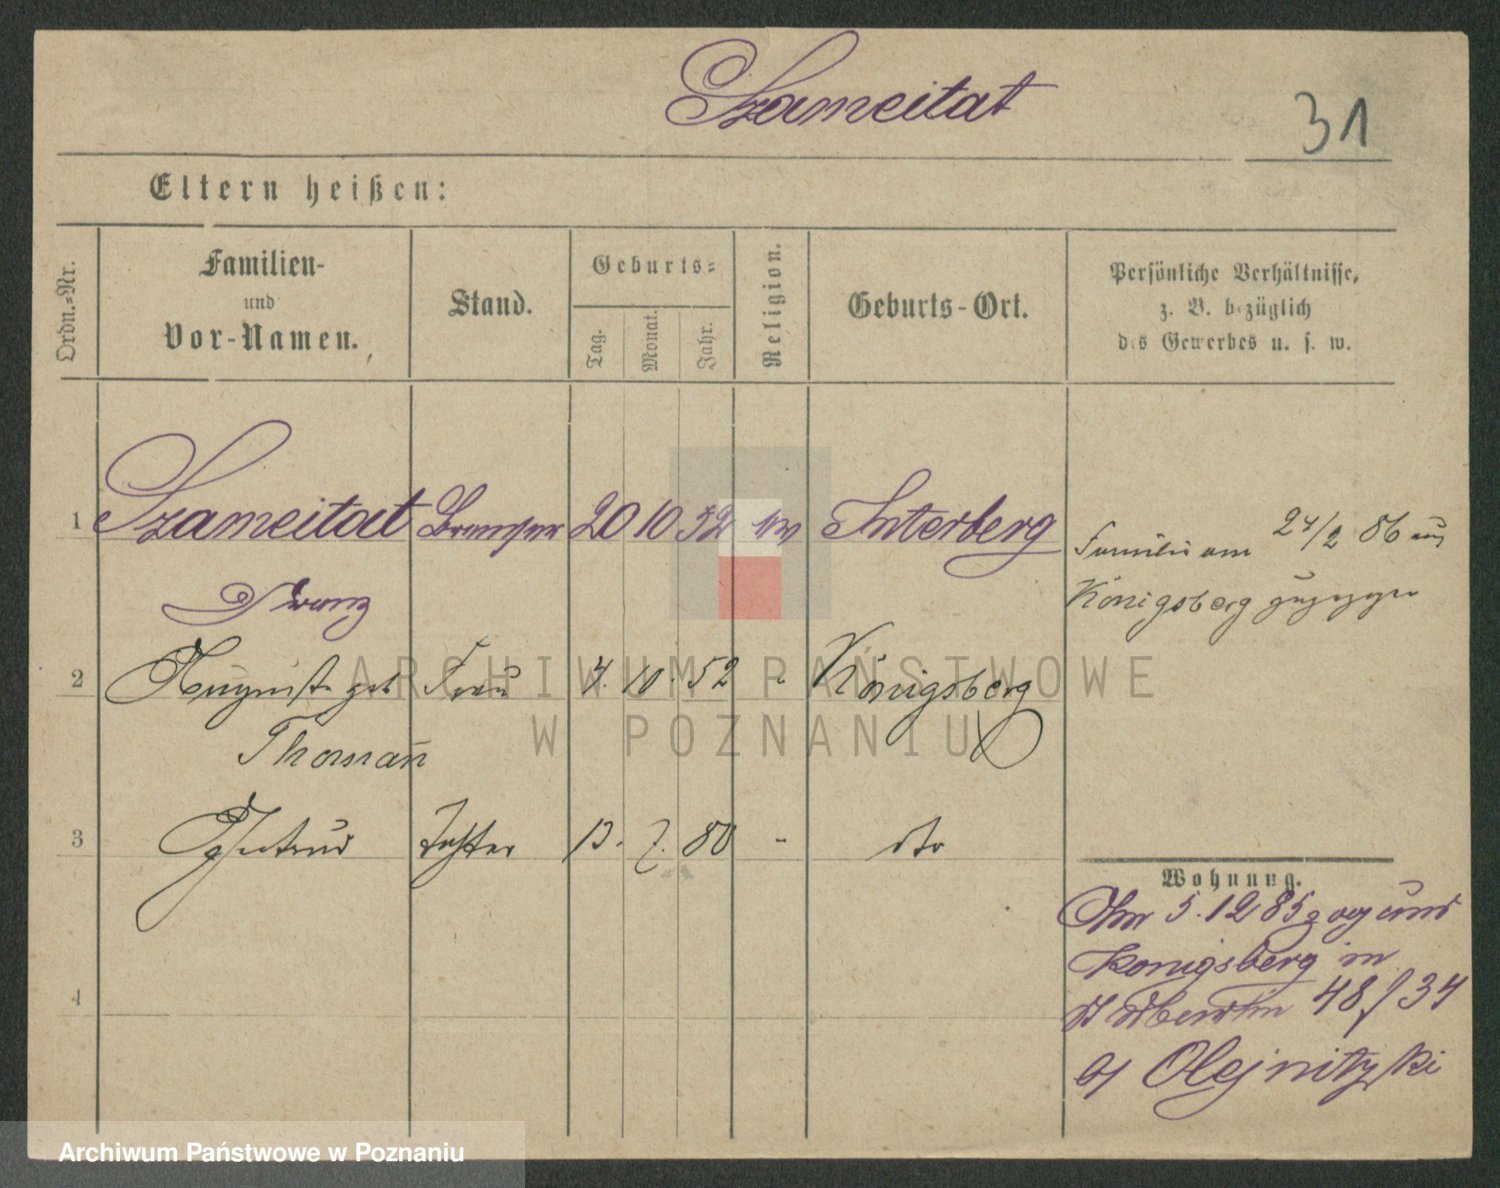 Szameitat
31
Eltern heißen:
Ordn.-Nr.
Familien-
und
Vor-Namen.
Stand.
Geburts-
Tag.
Monat.
Jahr.
Religion.
Geburts-Ort.
Persönliche Verhältnisse,
z. B. bezüglich
des Gewerbes u. s. w.
1 Szameitat Bremser 20 10 52 ev Insterberg
Franz
Familie am 24/2 86 aus
Königsberg zugezogen
2 Auguste geb Frau 4. 10. 52 Königsberg
Thomau
3 Gertrud Tochter 13. 7. 80 - dto
4
Wohnung.
Am 5.12 85 zog aus
Königsberg in
St Adalbertstr 48/34
b/ Olejnitzki
ARCHIWUM PAŃSTWOWE
W POZNANIU
Archiwum Państwowe w Poznaniu